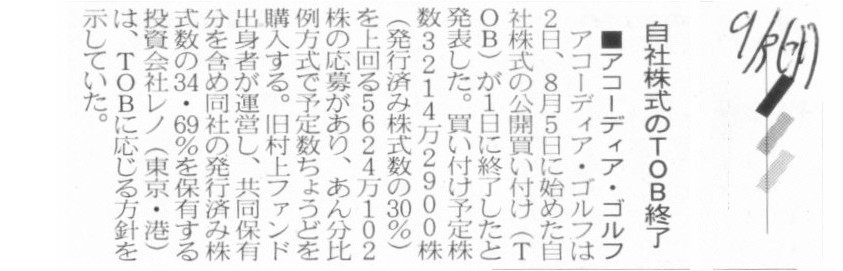 自社株式のTOB終了
■アコーディア・ゴルフ
アコーディア・ゴルフは
2日、8月5日に始めた自
社株式の公開買い付け(T
OB)が1日に終了したと
発表した。買い付け予定株
数3214万2900株
(発行済み株式数の30%)
を上回る5624万102
株の応募があり、あん分比
例方式で予定数ちょうどを
購入する。旧村上ファンド
出身者が運営し、共同保有
分を含め同社の発行済み株
式数の34・69%を保有する
投資会社レノ(東京・港)
は、TOBに応じる方針を
示していた。